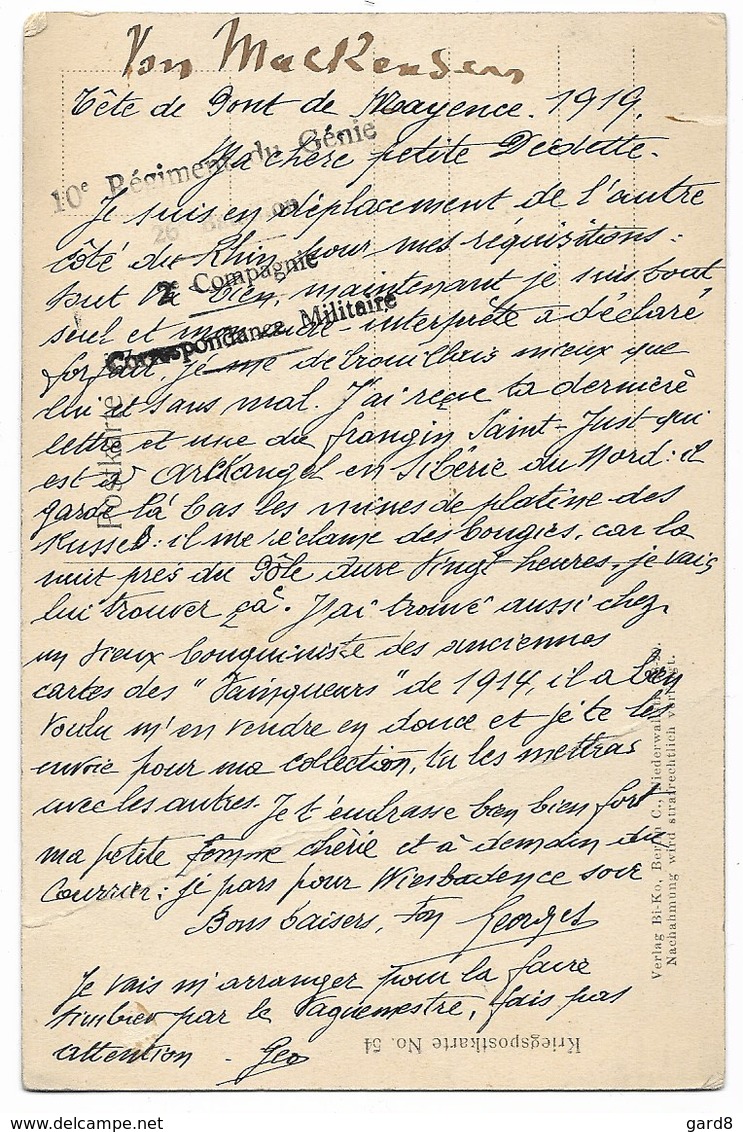 Von Mackensen
Tête de Pont de Mayence. 1919.
Ma chère petite Dédette.
10e Régiment du Génie
Je suis en déplacement de l'autre
26
côté du Rhin pour mes réquisitions:
2e Compagnie
tout va bien, maintenant je suis tout
Correspondance Militaire
seul et mon interprète a déclaré
forfait. Je me débrouillais mieux que
lui et sans mal. J'ai reçue ta dernière
lettre et une du frangin Saint-Just qui
est à Arckangel en Sibérie du Nord: il
garde là bas les mines de platine des
Russes: il me réclame des bougies, car la
nuit près du Pôle dure Vingt heures. je vais
lui trouver ça. J'ai trouvé aussi chez
un vieux bouquiniste des anciennes
cartes des "Vainqueurs" de 1914, il a bien
voulu m'en vendre en douce et je te les
envoie pour ma collection, tu les mettras
avec les autres. Je t'embrasse bien bien fort
ma petite femme chérie et à demain du
Courrier: je pars pour Wiesbaden ce soir
Bons baisers, ton Georges
Je vais m'arranger pour la faire
timbrer par le Vaguemestre, fais pas
attention. Geo
Postkarte
Verlag Bi-Ko, Berlin C., Niederwall
Nachahmung wird strafrechtlich verfolgt.
Kriegspostkarte No. 54
gard8